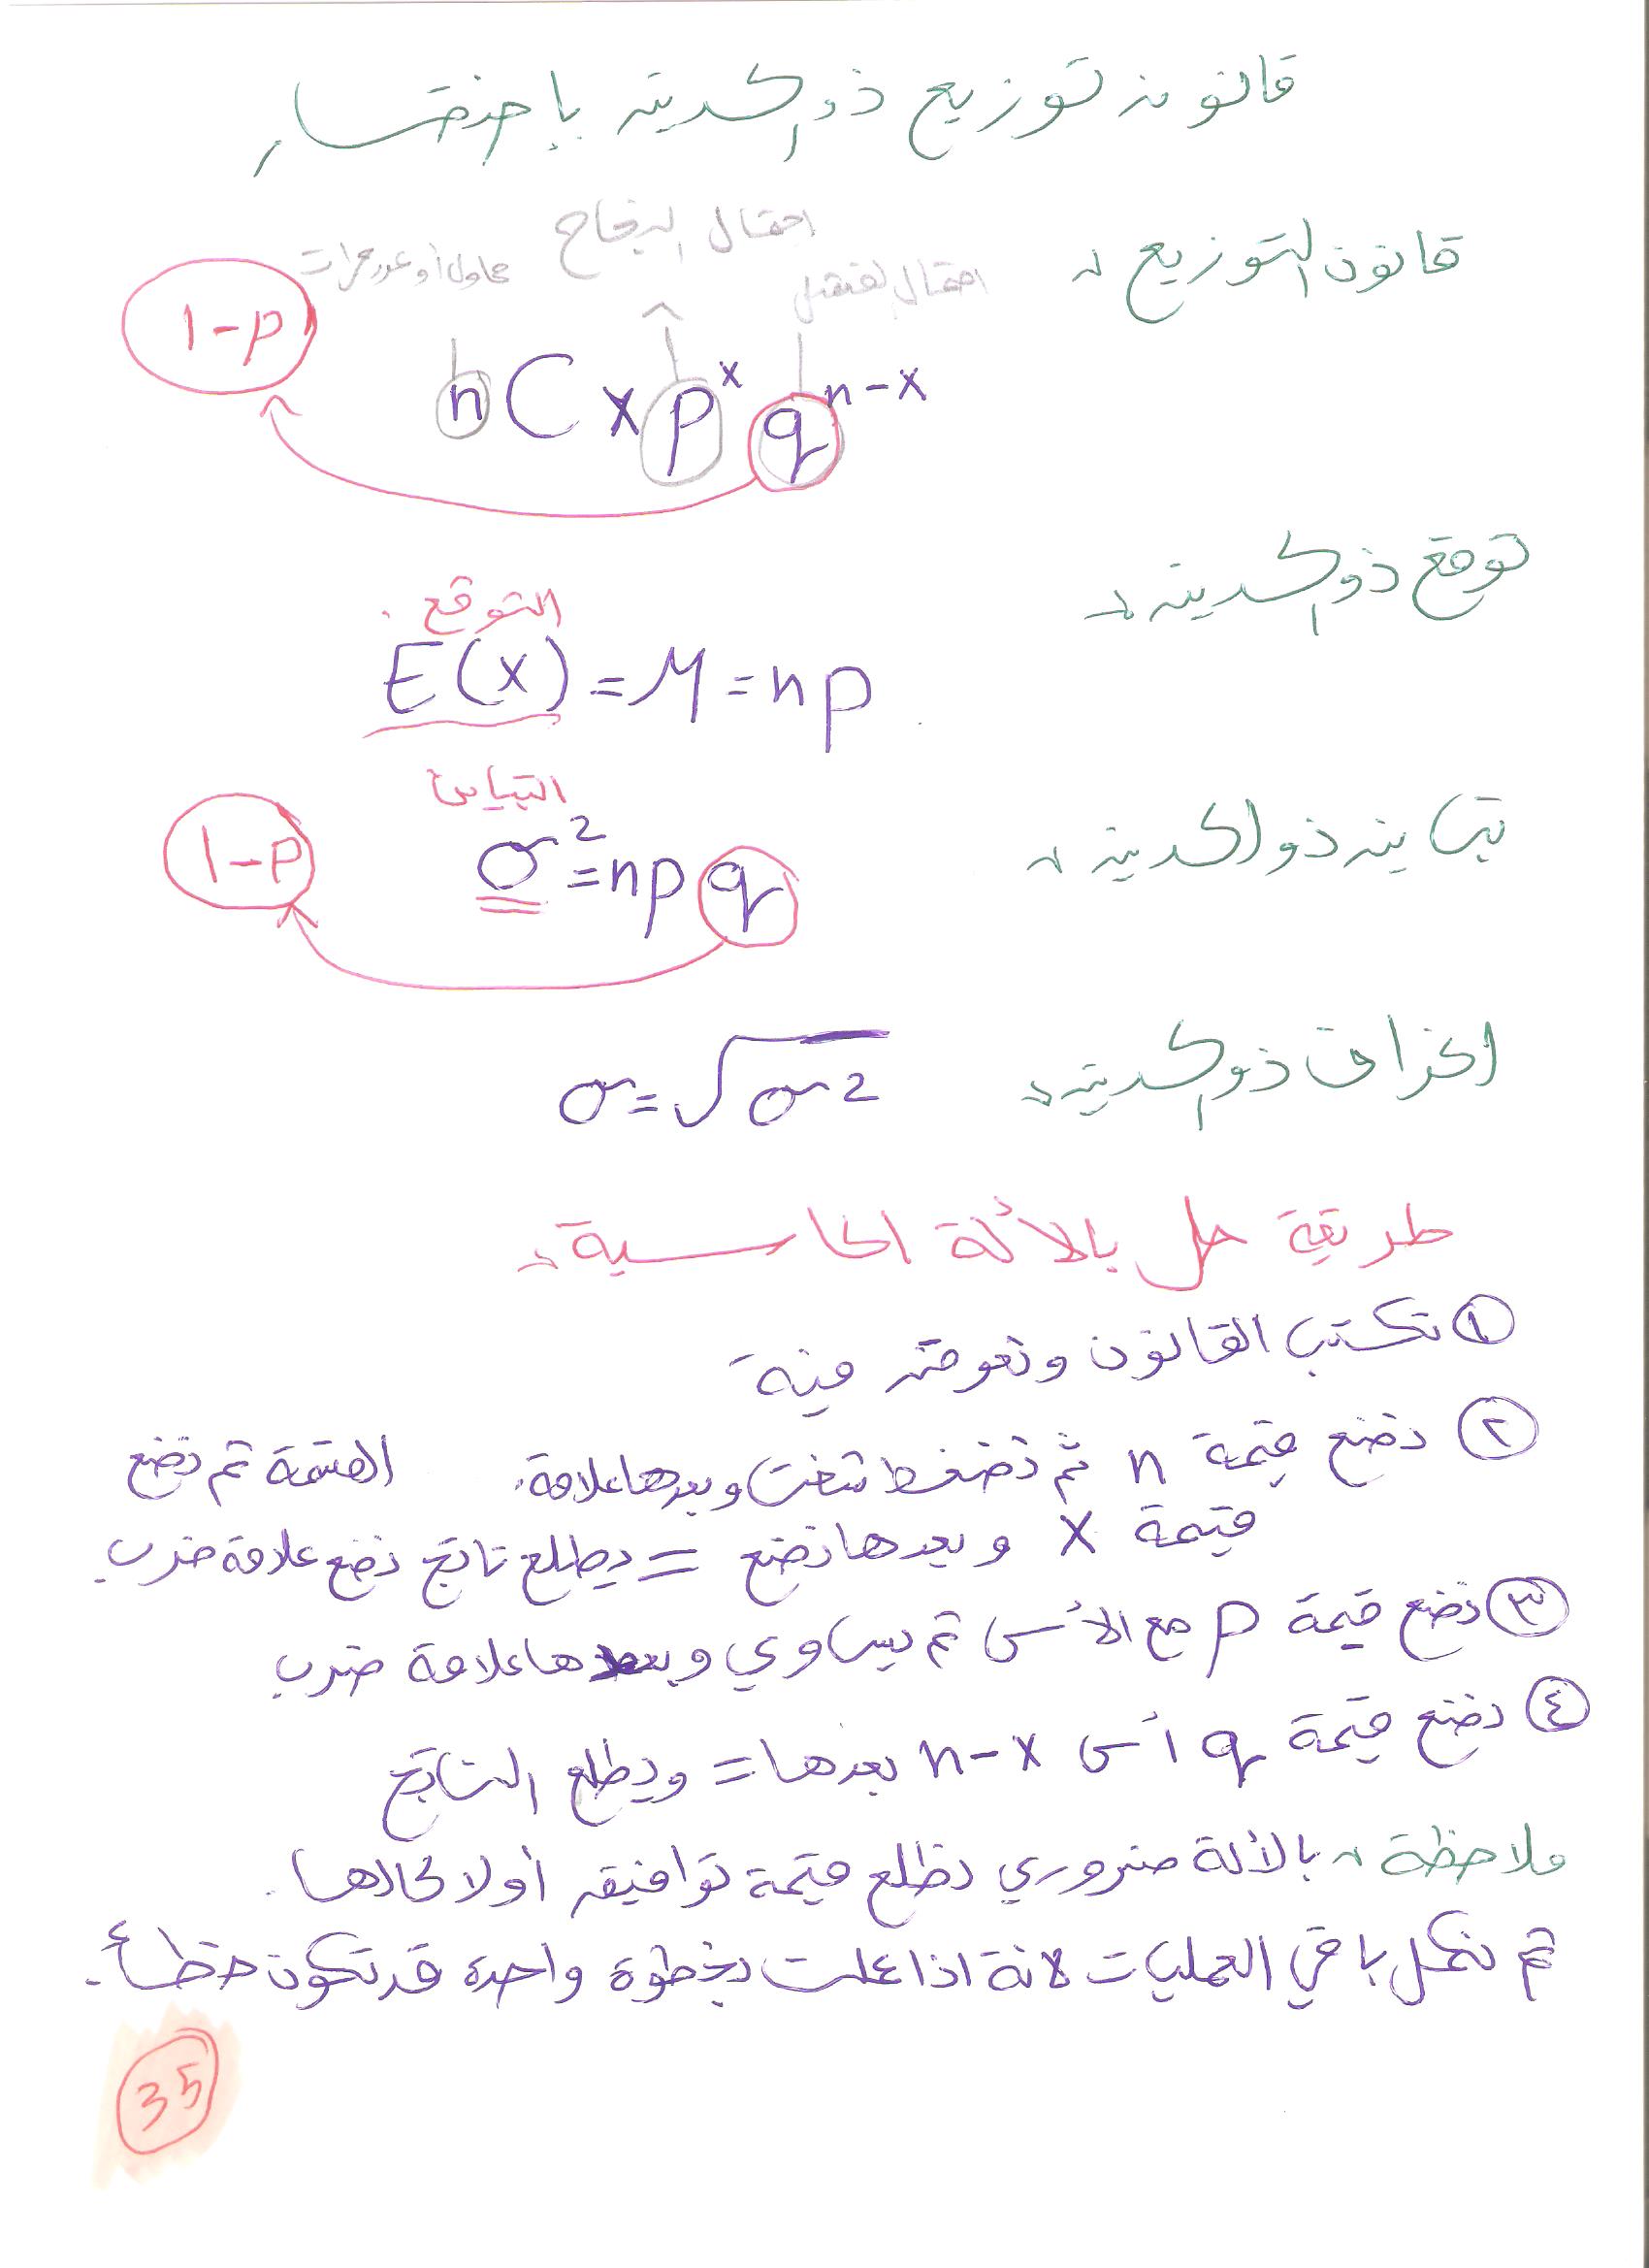 قانون توزيع ذو الحدين باختصار
قانون التوزيع :
احتمال النجاح
احتمال الفشل
محاولة أو عدد مرات
1-p
nCx p^x q^n-x
توقع ذو الحدين :
التوقع
E(x) = M = np
تباين ذو الحدين :
التباين
1-p
σ^2 = npq
انحراف ذو الحدين :
σ = √σ2
طريقة حل بالألة الحاسبة :
١ نكتب القانون ونعوض فيه
٢ نضع قيمة n ثم نضغط شفت وبعدها علامة القسمة ثم نضع
قيمة x وبعدها نضع = يطلع ناتج نضع علامة ضرب
٣ نضع قيمة p مع الأس ثم يساوي وبعدها علامة ضرب
٤ نضع قيمة q أس n-x بعدها = ويطلع الناتج
ملاحظة : بالألة ضروري نطلع قيمة توافيق أولا لحالها
ثم نكمل باقي العمليات لانة اذا عملت بخطوة واحدة قد تكون خطأ.
35